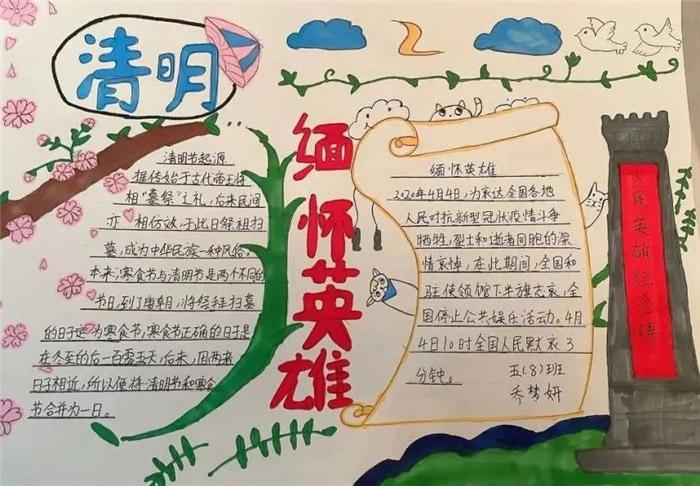 清明
清明节起源
据传始于古代帝王将
相"墓祭"之礼,后来民间
亦相仿效,于此日祭祖扫
墓,成为中华民族一种风俗。
本来,寒食节与清明节是两个不同的
节日,到了唐朝,将祭拜扫墓
的日子定为寒食节,寒食节正确的日子是
在冬至的后一百零五天,后来,因两者
日子相近,所以便将清明节和寒食
节合并为一日。
缅怀英雄
缅怀英雄
2020年4月4日,为表达全国各地
人民对抗新型冠状疫情斗争
牺牲,烈士和逝者同胞的深
情哀悼,在此期间,全国和
驻使领馆下半旗志哀,全
国停止公共娱乐活动。4月
4日10时全国人民默哀3
分钟。
五(8)班
乔梦妍
人民英雄纪念碑